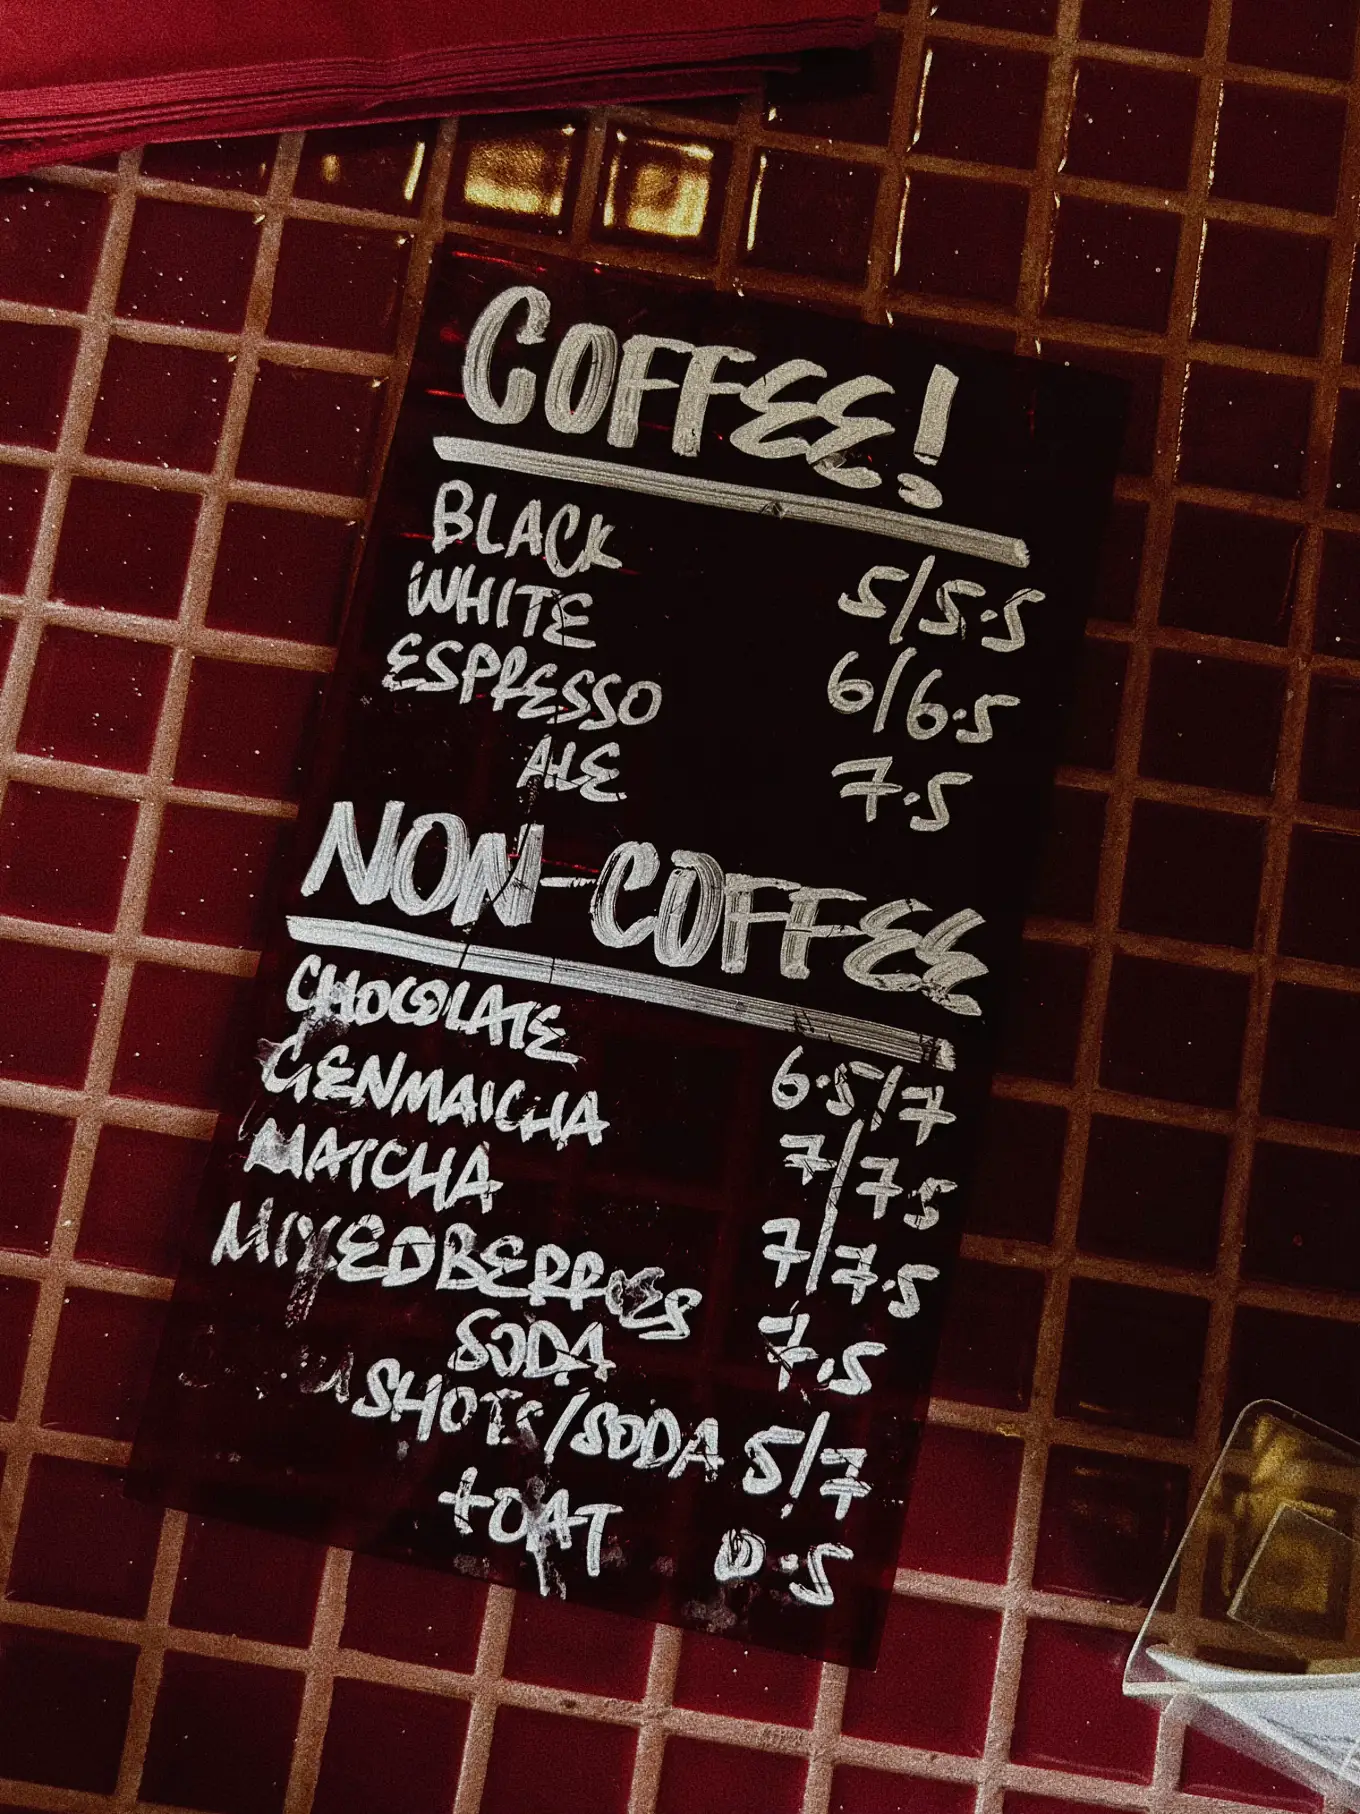 COFFEE!
BLACK 5/5.5
WHITE 6/6.5
ESPRESSO
ALE 7.5
NON-COFFEE
CHOCOLATE 6.5/7
GENMAICHA 7/7.5
MATCHA 7/7.5
MIXED BERRIES
SODA 7.5
SHOTS/SODA 5/7
+OAT 0.5